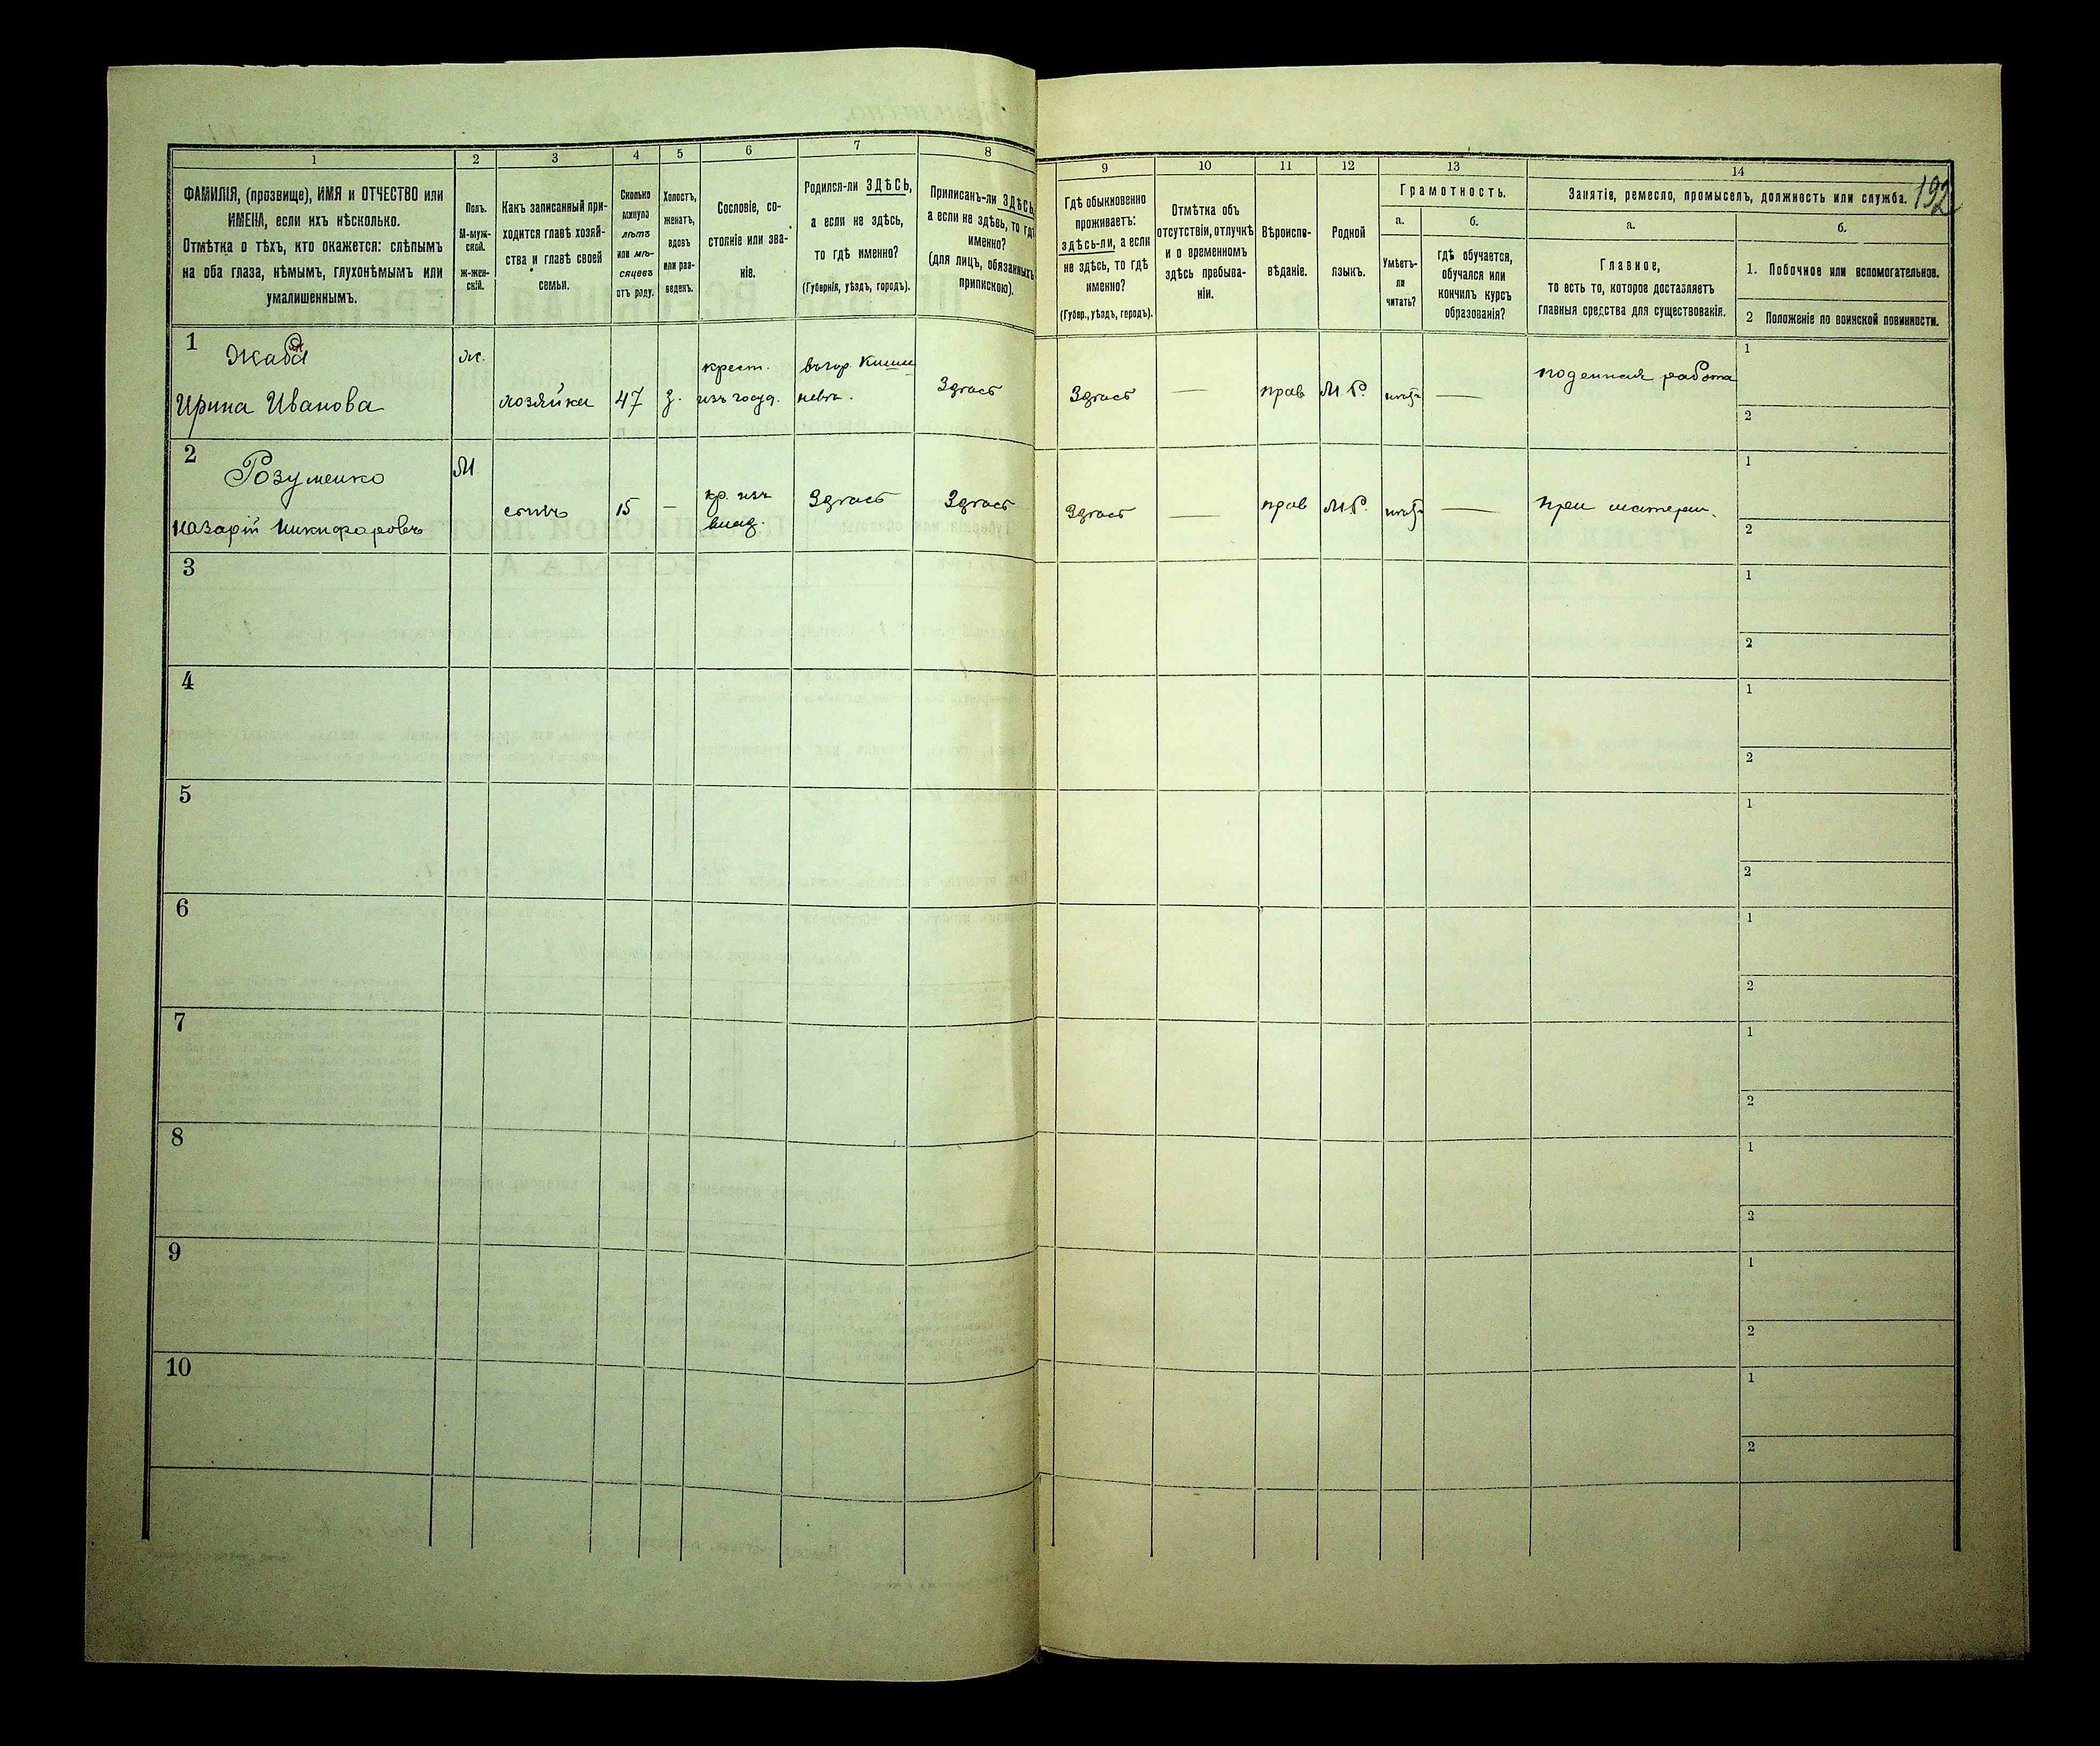 192
1
2
3
4
5
6
7
8
9
10
11
12
13
14
ФАМИЛІЯ, (прозвище), ИМЯ и ОТЧЕСТВО или
ИМЕНА, если ихъ нѣсколько.
Отмѣтка о тѣхъ, кто окажется: слѣпымъ
на оба глаза, нѣмымъ, глухонѣмымъ или
умалишеннымъ.
Полъ.
М-муж-
ской.
ж-жен-
скій.
Какъ записанный при-
ходится главѣ хозяй-
ства и главѣ своей
семьи.
Сколько
минуло
лѣтъ
или мѣ-
сяцевъ
отъ роду.
Холостъ,
женатъ,
вдовъ
или раз-
веденъ.
Сословіе, со-
стояніе или зва-
ніе.
Родился-ли ЗДѢСЬ,
а если не здѣсь,
то гдѣ именно?
(Губернія, уѣздъ, городъ).
Приписанъ-ли ЗДѢСЬ,
а если не здѣсь, то гдѣ
именно?
(для лицъ, обязанныхъ
припискою).
Гдѣ обыкновенно
проживаетъ:
здѣсь-ли, а если
не здѣсь, то гдѣ
именно?
(Губер., уѣздъ, городъ).
Отмѣтка объ
отсутствіи, отлучкѣ
и о временномъ
здѣсь пребыва-
ніи.
Вѣроиспо-
вѣданіе.
Родной
языкъ.
Грамотность.
а.
Умѣетъ-
ли
читать?
б.
гдѣ обучается,
обучался или
кончилъ курсъ
образованія?
Занятія, ремесло, промыселъ, должность или служба.
а.
Главное,
то есть то, которое доставляетъ
главныя средства для существованія.
б.
1. Побочное или вспомогательное.
2 Положеніе по воинской повинности.
1
Ирина Иванова
ж.
хозяйка
47
крест.
изъ госуд.
въ гор. Киши
невѣ.
Здѣсь
Здѣсь
—
прав
М.Р.
нѣтъ
—
поденная работа
1
2
2
Розуменко
Назарій Никифоровъ
М
сынъ
15
—
кр. изъ
влад.
Здѣсь
Здѣсь
Здѣсь
—
прав
М.Р.
нѣтъ
—
при матери.
1
2
3
1
2
4
1
2
5
1
2
6
1
2
7
1
2
8
1
2
9
1
2
10
1
2